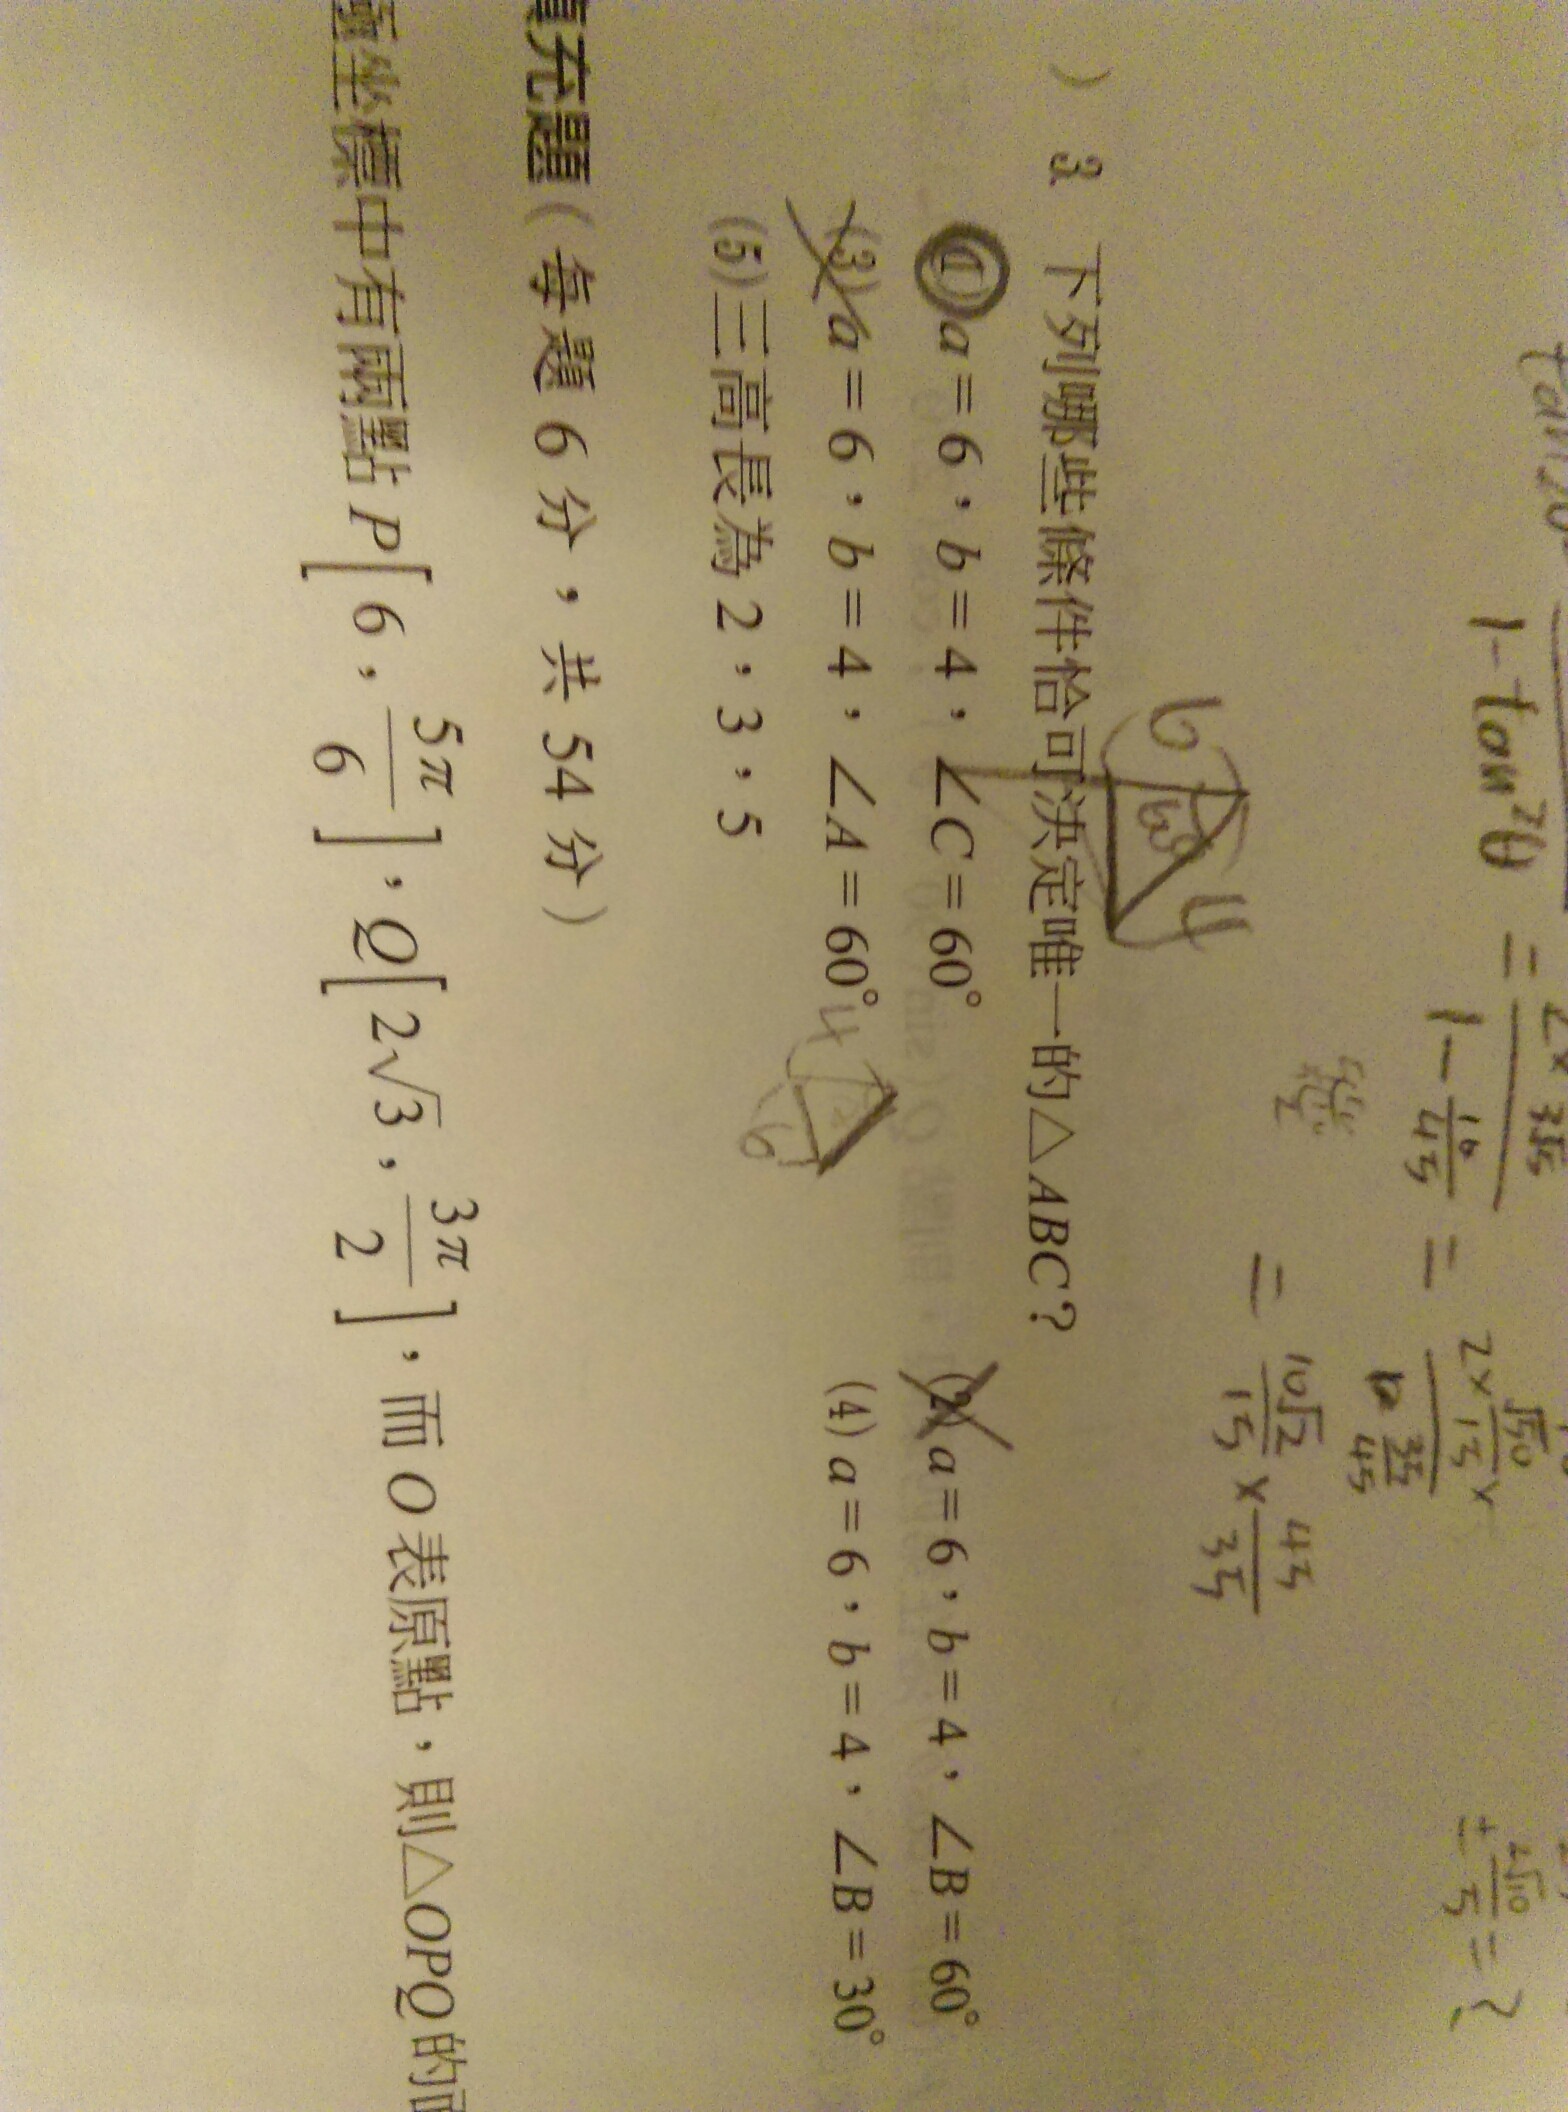 1-tan²θ = 2× / 1-16/45 = 2×√50/15 × / 35/45
= 10√2/15 × 45/35
) 3. 下列哪些條件恰可決定唯一的△ABC？
(1) a=6，b=4，∠C=60° (2) a=6，b=4，∠B=60°
(3) a=6，b=4，∠A=60° (4) a=6，b=4，∠B=30°
(5)三高長為 2，3，5
6 60° 4
4 6
填充題(每題 6 分，共 54 分)
坐標中有兩點 P[6，5π/6]，Q[2√3，3π/2]，而 O 表原點，則△OPQ的